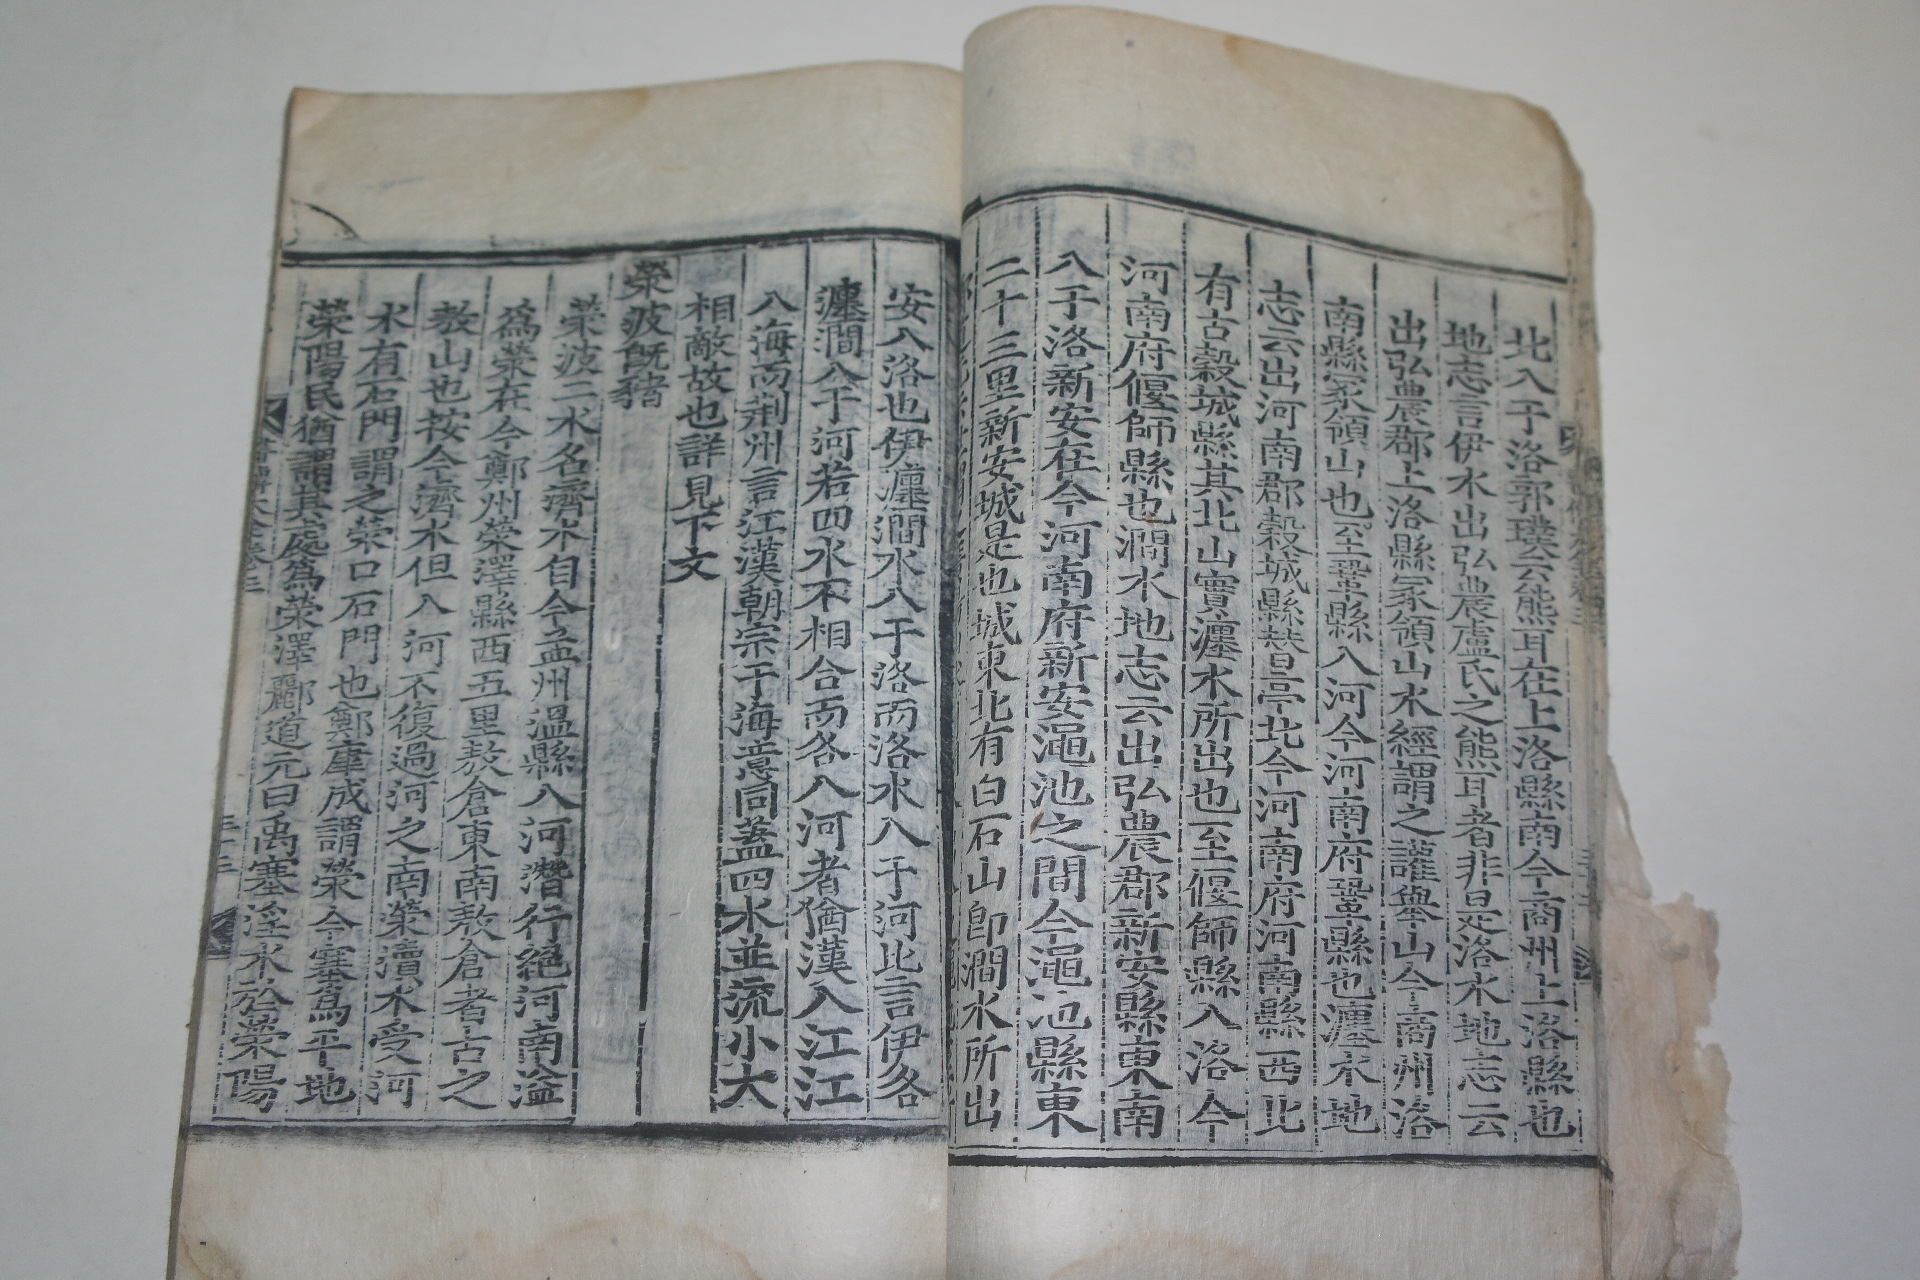 北入于洛郭璞云熊耳在上洛縣南今商州上洛縣也
地志言伊水出弘農盧氏之熊耳者非是洛水地志云
出弘農郡上洛縣冢領山水經謂之讙舉山今商州洛
南縣冢領山也至鞏縣入河今河南府鞏縣也瀍水地
志云出河南郡穀城縣朁亭北今河南府河南縣西北
有古穀城縣其北山實瀍水所出也至偃師縣入洛今
河南府偃師縣也澗水地志云出弘農郡新安縣東南
入于洛新安在今河南府新安澠池之間今澠池縣東
二十三里新安城是也城東北有白石山卽澗水所出
安入洛也伊瀍澗水入于洛而洛水入于河此言伊各
瀍澗入于河若四水不相合而各入河者猶漢入江江
入海而荆州言江漢朝宗于海意同蓋四水並流小大
相敵故也詳見下文
榮波旣豬
榮波二水名濟水自今孟州溫縣入河潛行絕河南溢
爲榮在今鄭州榮澤縣西五里敖倉東南敖倉者古之
敖山也按今濟水但入河不復過河之南榮瀆水受河
水有石門謂之榮口石門也鄭康成謂榮今塞爲平地
榮陽民猶謂其處爲榮澤酈道元曰禹塞淫水於榮陽
書傳大全卷三